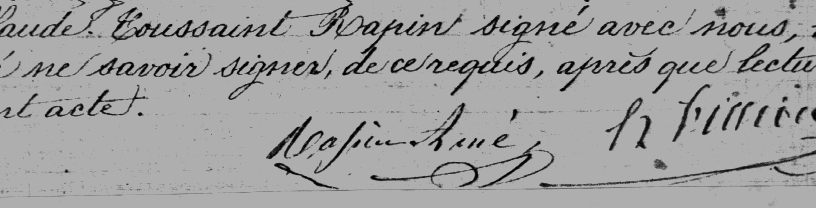 laude. Toussaint Rapin signé avec nous,
ne savoir signer, de ce requis, après que lectu
nt acte.
Rapin Aîné